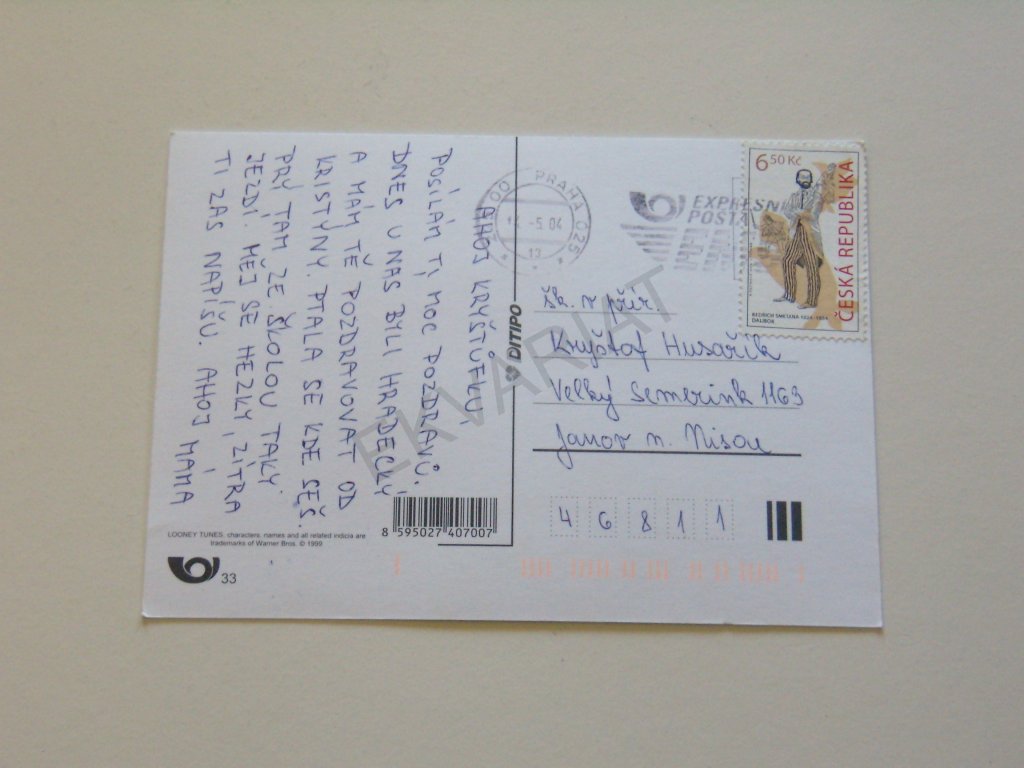 AHOJ KRYŠTŮFKU,
POSÍLÁM TI MOC POZDRAVŮ.
DNES U NÁS BYLI HRADEČKY
A MÁM TĚ POZDRAVOVAT OD
KRISTÝNY. PTALA SE KDE SEŠ.
PRÝ TAM ZE ŠKOLOU TAKY
JEZDÍ. MĚJ SE HEZKY, ZÍTRA
TI ZAS NAPÍŠU. AHOJ MÁMA
LOONEY TUNES, characters, names and all related indicia are
trademarks of Warner Bros. © 1999
33
8 595027 407007
DITIPO
PRAHA 025
-5.04
13
EXPRESNÍ
POŠTA
6,50 Kč
ČESKÁ REPUBLIKA
BEDŘICH SMETANA 1824 - 1884
DALIBOR
šk. v přír.
Kryštof Husařík
Velký Semerink 1169
Janov n. Nisou
46811
EKVARIAT